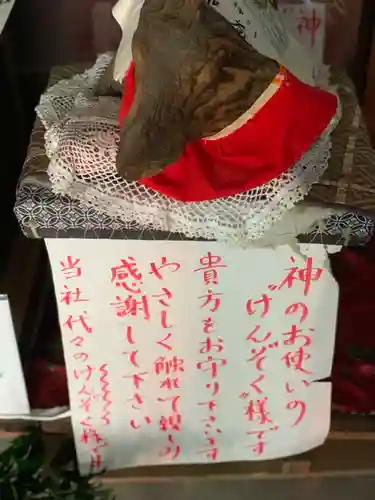 神
神のお使いの
"けんぞく"様です
貴方をお守り下さいます
やさしく触れて親しみ
感謝して下さい
当社代々のけんぞく様です